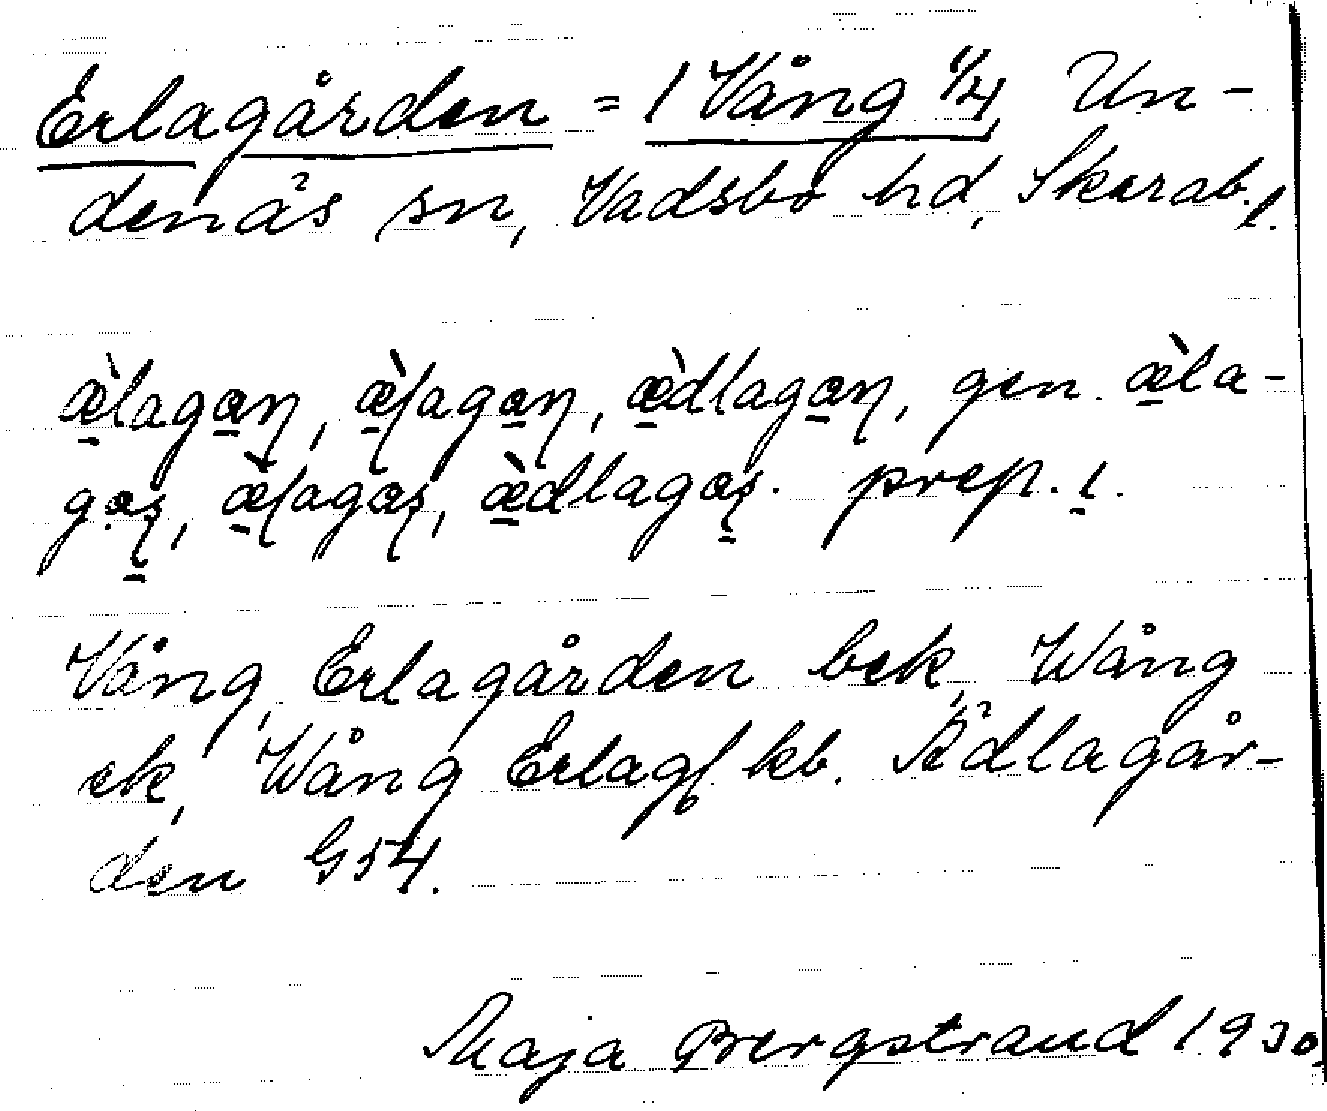 Erlagården = 1 Vång 1/4 Un-
denäs sn, Vadsbo hd, Skarab. l.
æ̀lagan, æ̀lagan, æ̀dlagan, gen. æ̀la-
gas, æ̀lagas, æ̀dlagas. prep. i.
Vång, Erlagården bek, Wång
ek, Wång Erlag kb. Ädlagår-
den G54.
Maja Bergstrand 1930